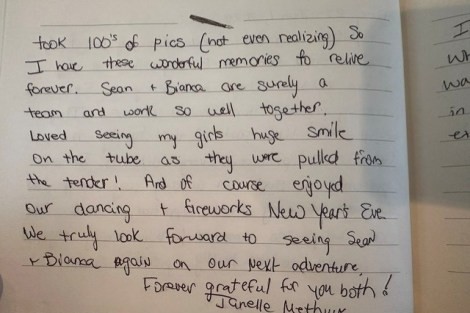 took 100's of pics (not even realizing) So
I have these wonderful memories to relive
forever. Sean + Bianca are surely a
team and work so well together.
Loved seeing my girls huge smile
on the tube as they were pulled from
the tender! And of course enjoyed
our dancing + fireworks New Year's Eve
We truly look forward to seeing Sean
+ Bianca again on our next adventure.
Forever grateful for you both!
Janelle
I
in